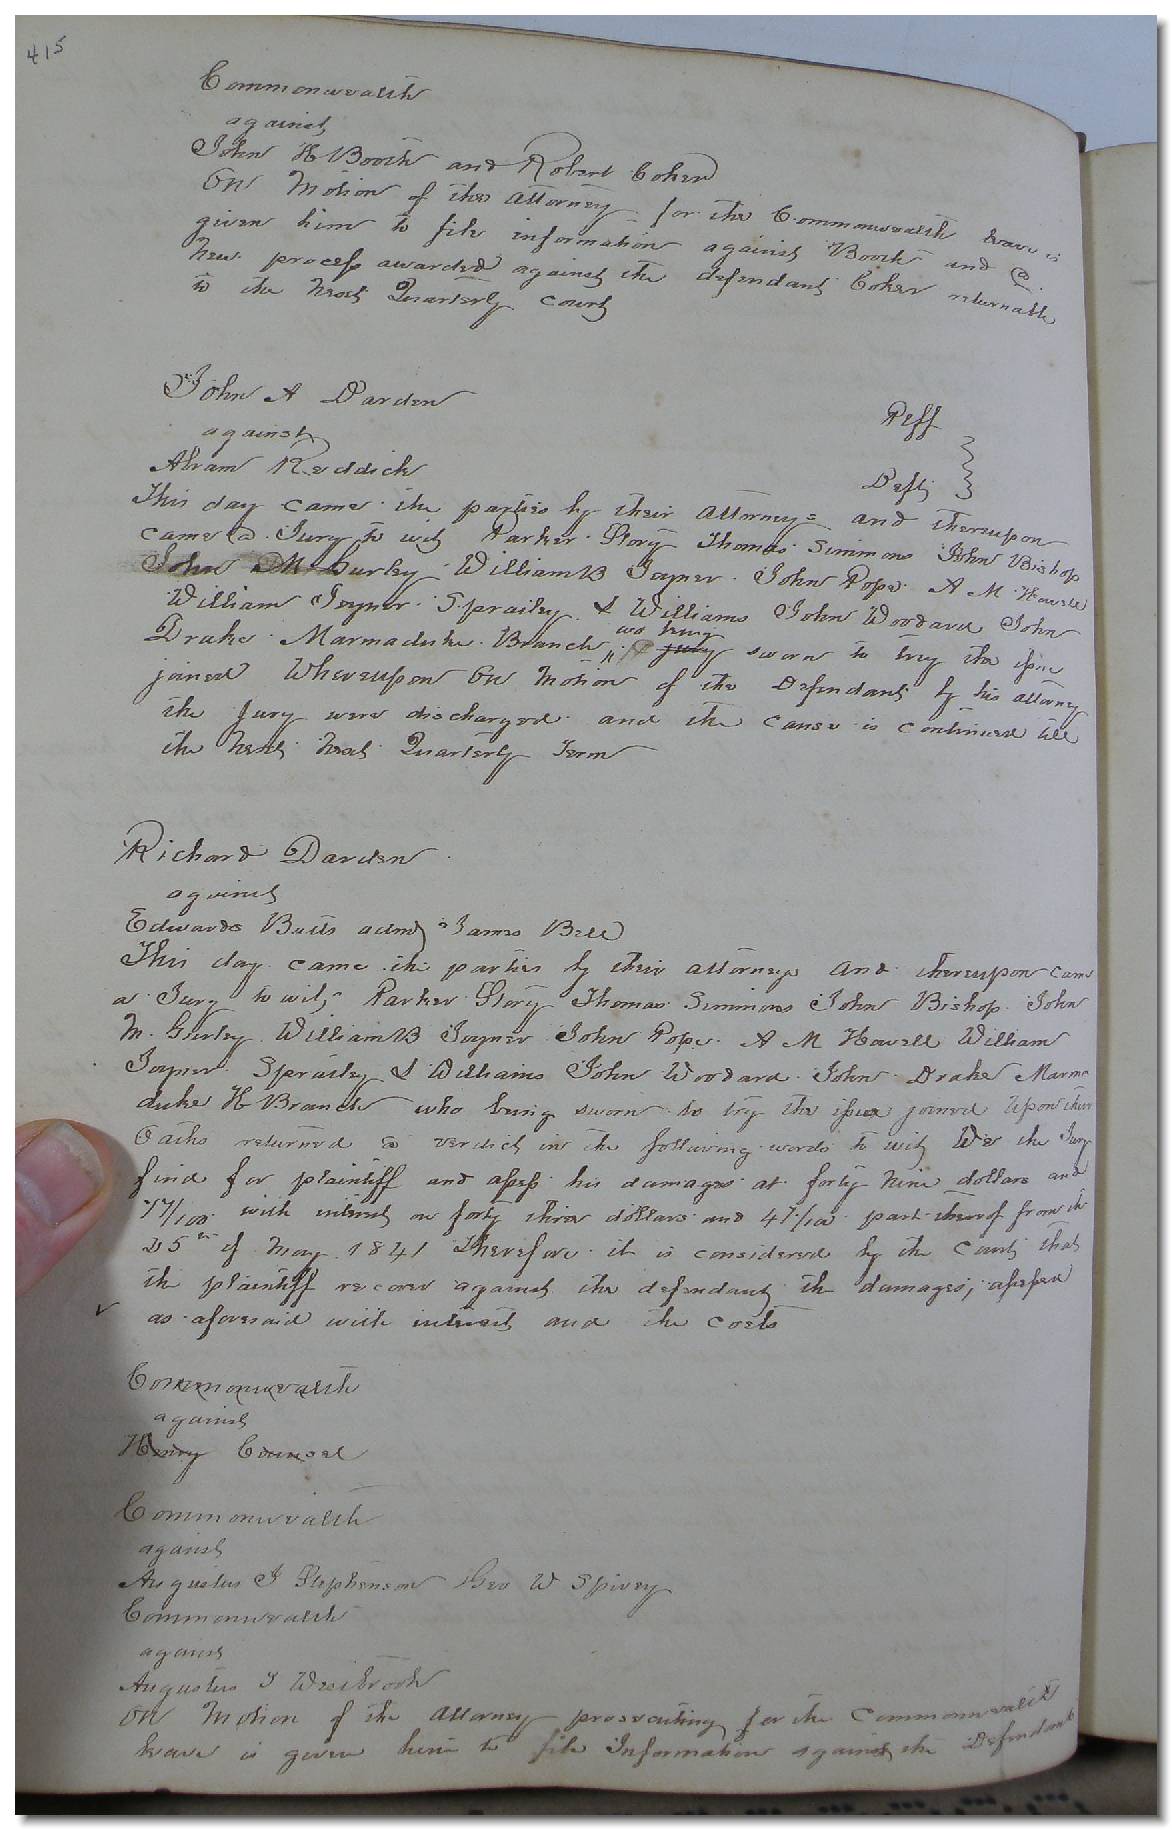 415
Commonwealth
against
John H Booth and Robert Coker
On Motion of the Attorney for the Commonwealth leave is
given him to file information against Booth and a
New process awarded against the defendant Coker returnable
to the next Quarterly court
John A Darden Plff
against
Abram Reddick Deft
This day came the parties by their attorneys and thereupon
came a Jury to wit Parker Story Thomas Simmons John Bishop
John M Gurley William B Joyner John Pope A M Howell
William Joyner Sprailey & Williams John Woodard John
Drake Marmaduke Branch who being jury sworn to try the issue
joined Whereupon On Motion of the Defendant by his attorney
the jury were discharged and the cause is continued till
the next next Quarterly Term
Richard Darden
against
Edwards Butts admr James Bell
This day came the parties by their attorneys and thereupon came
a Jury to wit Parker Story Thomas Simmons John Bishop John
M. Gurley William B Joyner John Pope A M Howell William
Joyner Sprailey & Williams John Woodard John Drake Marma
duke H Branch who being sworn to try the issue joined upon their
Oaths returned a verdict in the following words to wit We the Jury
find for plaintiff and assess his damages at forty nine dollars and
77/100 with interest on forty three dollars and 47/100 part thereof from the
25th of May 1841 Therefore it is considered by the Court that
the plaintiff recover against the defendant the damages, assessed
as aforesaid with interest and the costs
Commonwealth
against
Henry Counsel
Commonwealth
against
Augustus J Stephenson Geo W Spivey
Commonwealth
against
Augustus J Westbrook
On Motion of the Attorney prosecuting for the Commonwealth
leave is given him to file Information against the Defendants